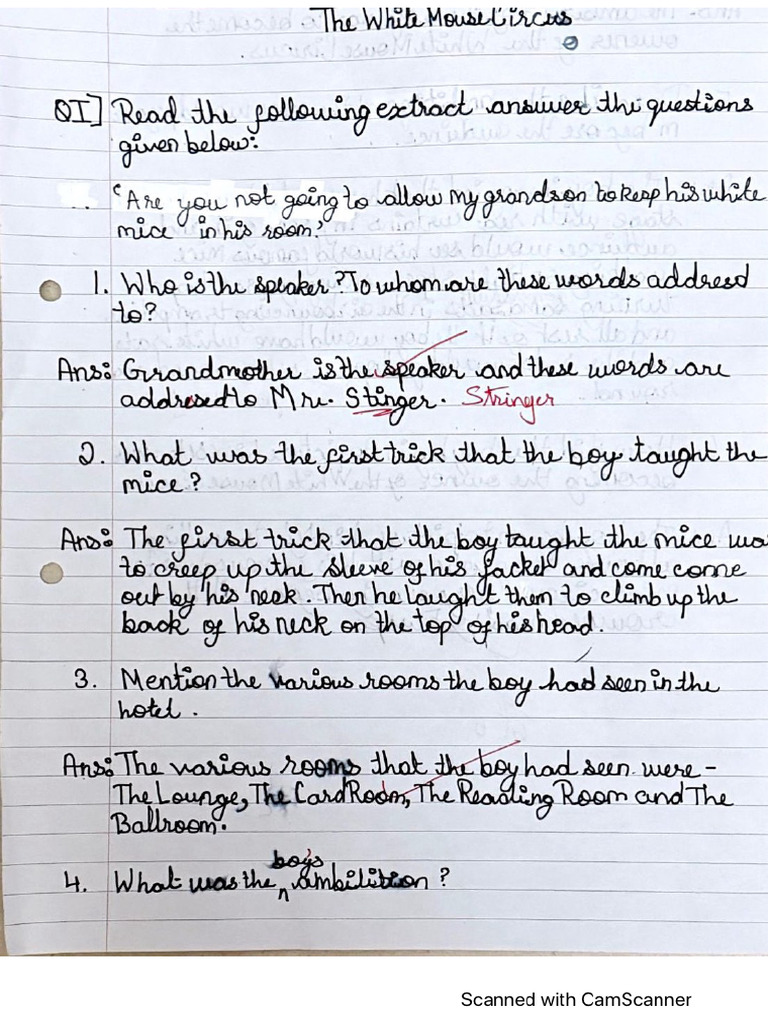 The White Mouse Circus
QI] Read the following extract answer the questions
given below:
"Are you not going to allow my grandson to keep his white
mice in his room?'
1. Who is the speaker? To whom are these words addresd
to?
Ans: Grandmother is the speaker and these words are
addresed to Mr. Stinger. Stringer
2. What was the first trick that the boy taught the
mice?
Ans: The first trick that the boy taught the mice wa
to creep up the sleeve of his jacket and come come
out by his neck. Then he taught them to climb up the
back of his neck on the top of his head.
3. Mention the various rooms the boy had seen in the
hotel.
Ans: The various rooms that the boy had seen were -
The Lounge, The Card Room, The Reading Room and The
Ballroom.
boys
4. What was the ambilition?
Scanned with CamScanner